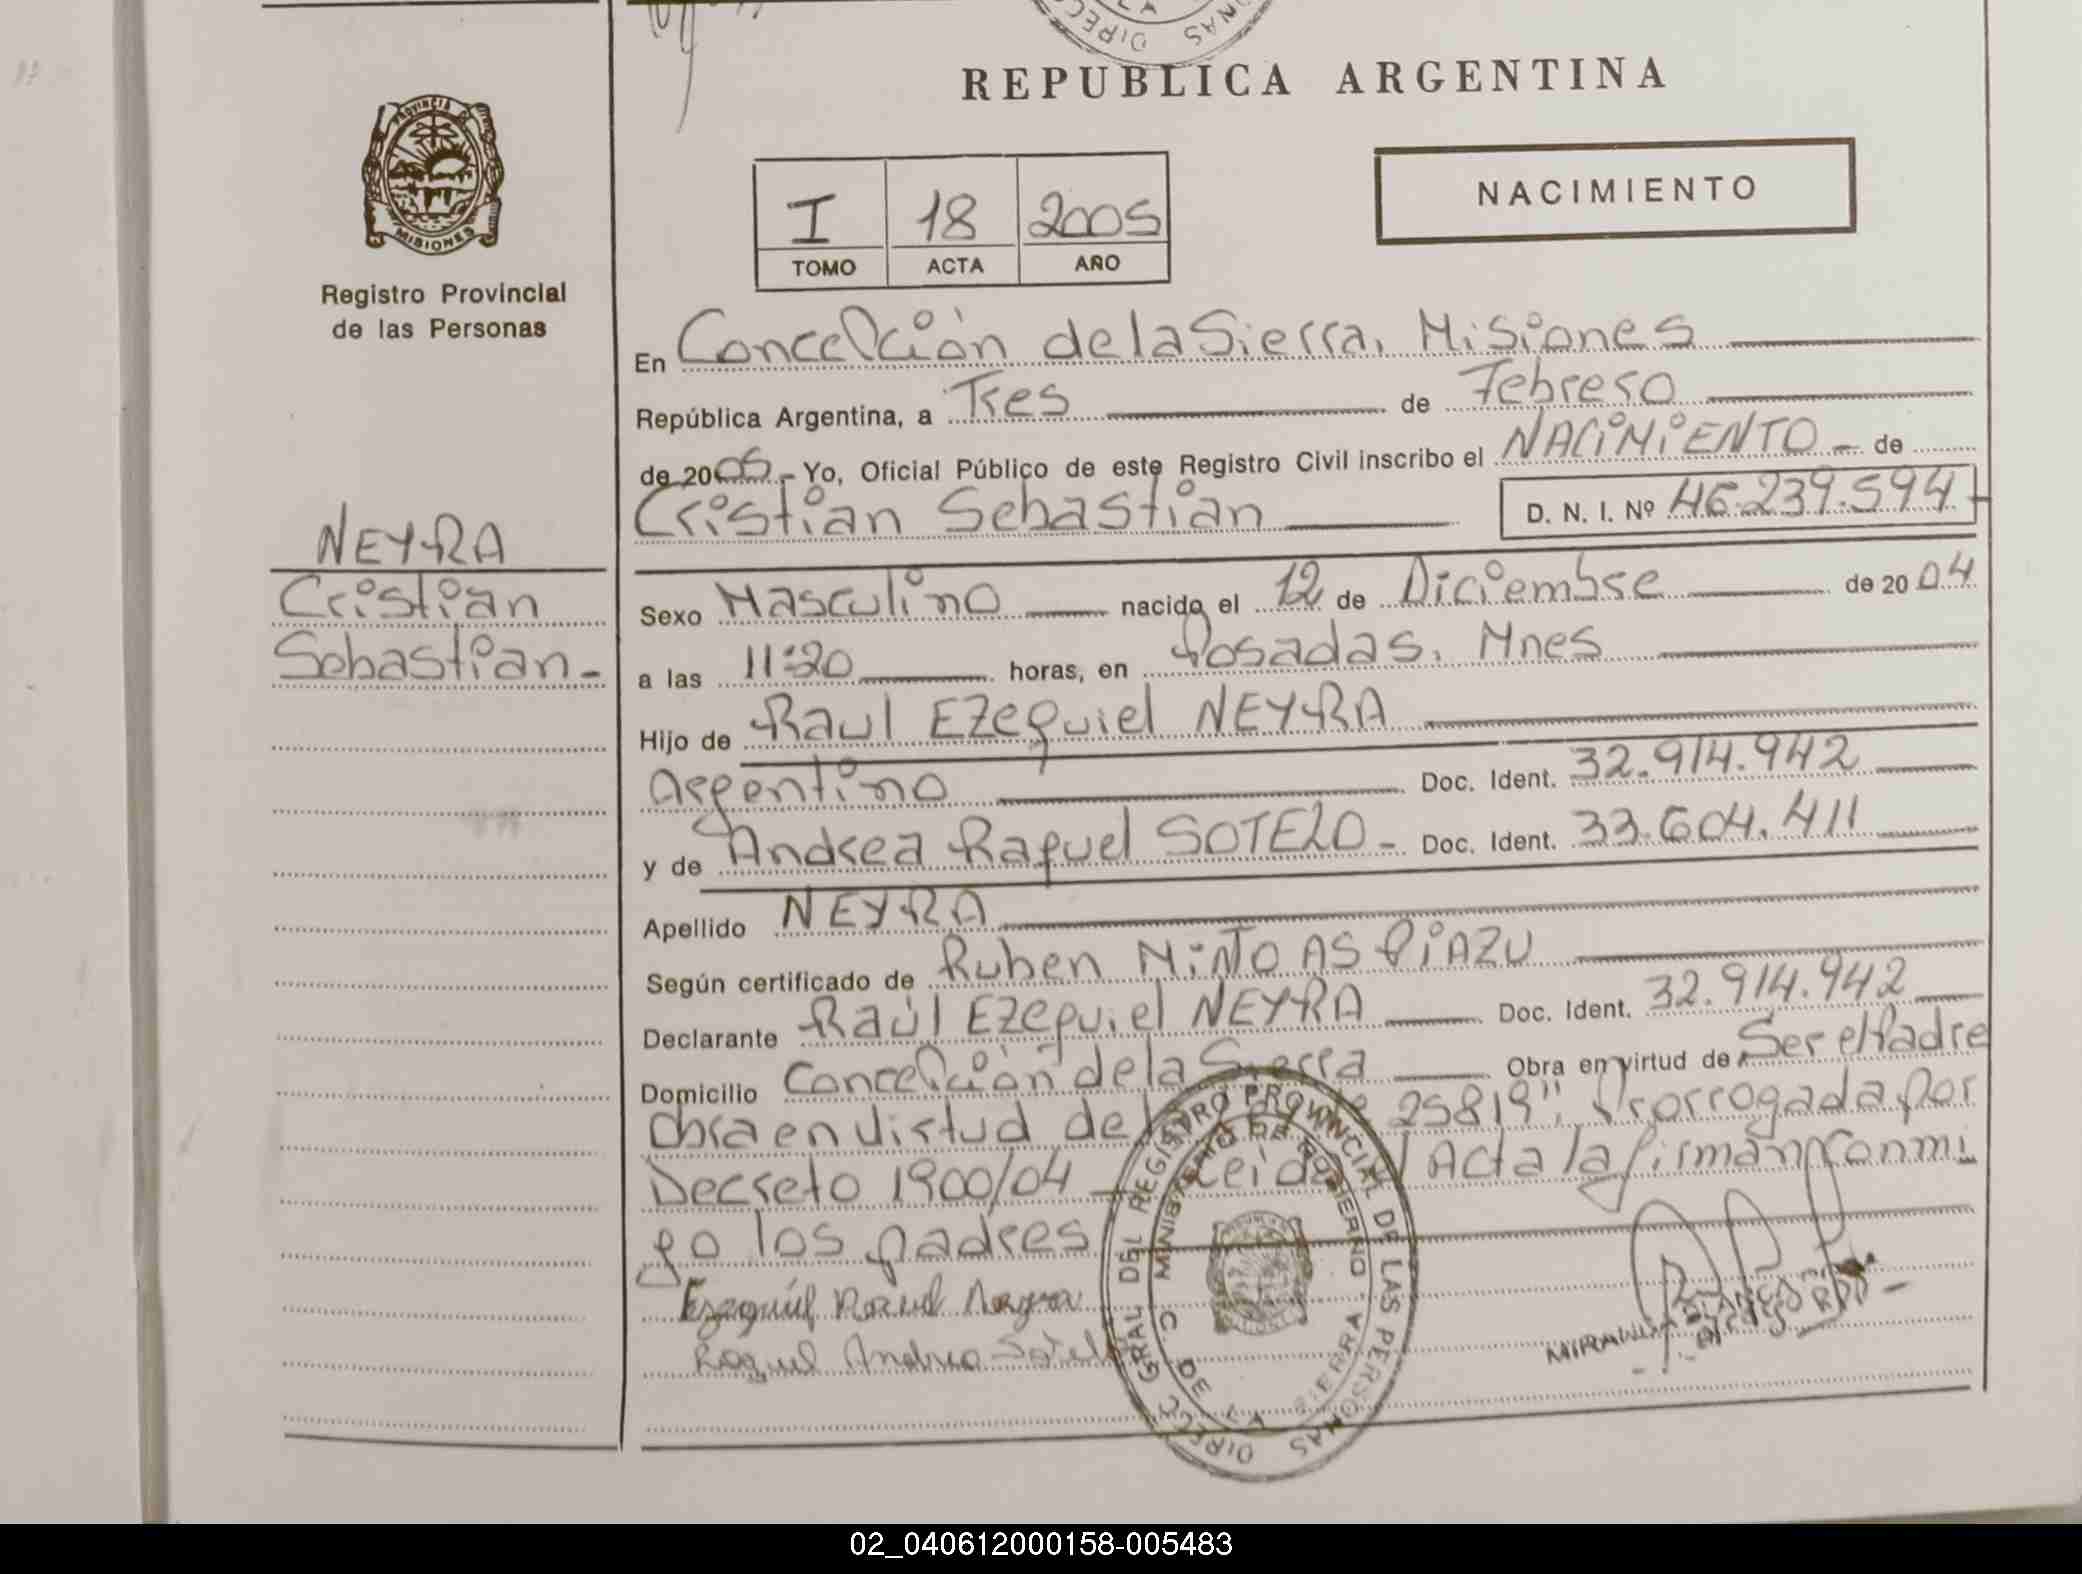 REPUBLICA ARGENTINA
PROVINCIA DE
MISIONES
Registro Provincial
de las Personas
I 18 2005
TOMO ACTA AÑO
NACIMIENTO
En Concepción de la Sierra, Misiones
República Argentina, a Tres de Febrero
de 2005.- Yo, Oficial Público de este Registro Civil inscribo el NACIMIENTO - de
Cristian Sebastian D. N. I. Nº 46.239.594
NEYRA
Cristian
Sebastian -
Sexo Masculino nacido el 12 de Diciembre de 2004
a las 11:20 horas, en Posadas, Mnes
Hijo de Raul Ezequiel NEYRA
Argentino Doc. Ident. 32.914.942
y de Andrea Raquel SOTELO - Doc. Ident. 33.604.411
Apellido NEYRA
Según certificado de Ruben MiÑO ASPiAZU
Declarante Raúl Ezequiel NEYRA Doc. Ident. 32.914.942
Domicilio Concepción de la Sierra Obra en virtud de Ser el Padre
Obra en virtud de 25819", Prorrogada por
Decreto 1900/04 Leida Acta la firman conmi
go los padres
Ezequiel Raul Neyra
Raquel Andrea Sotelo
DIRECC. GRAL DEL REGISTRO PROVINCIAL DE LAS PERSONAS
MINISTERIO DE GOBIERNO
C. DE LA SIERRA
02_040612000158-005483